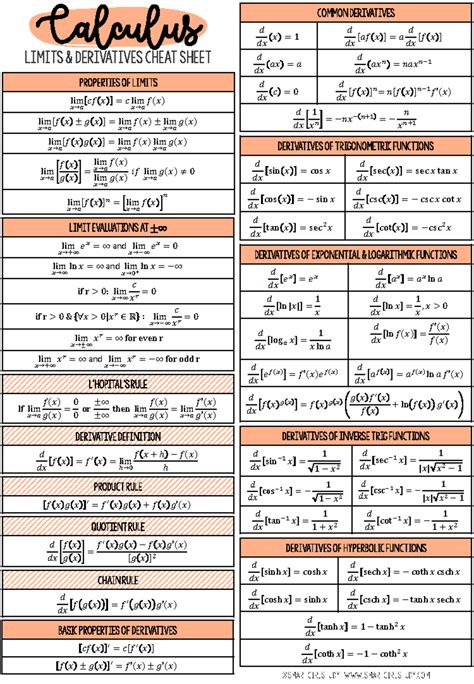 Calculus
LIMITS & DERIVATIVES CHEAT SHEET
PROPERTIES OF LIMITS
lim x→a [cf(x)] = c lim x→a f(x)
lim x→a [f(x) ± g(x)] = lim x→a f(x) ± lim x→a g(x)
lim x→a [f(x)g(x)] = lim x→a f(x) lim x→a g(x)
lim x→a [f(x)/g(x)] = lim x→a f(x) / lim x→a g(x) if lim x→a g(x) ≠ 0
lim x→a [f(x)]ⁿ = [lim x→a f(x)]ⁿ
LIMIT EVALUATIONS AT ±∞
lim x→+∞ eˣ = ∞ and lim x→−∞ eˣ = 0
lim x→∞ ln x = ∞ and lim x→0 ln x = −∞
if r > 0: lim x→∞ c/xʳ = 0
if r > 0 & {∀x > 0|xʳ ∈ ℝ}: lim x→−∞ c/xʳ = 0
lim x→±∞ xʳ = ∞ for even r
lim x→+∞ xʳ = ∞ and lim x→−∞ xʳ = −∞ for odd r
L'HOPITALS RULE
If lim x→a f(x)/g(x) = 0/0 or ±∞/±∞ then lim x→a f(x)/g(x) = lim x→a f'(x)/g'(x)
DERIVATIVE DEFINITION
d/dx [f(x)] = f'(x) = lim h→0 (f(x + h) − f(x))/h
PRODUCT RULE
[f(x)g(x)]' = f'(x)g(x) + f(x)g'(x)
QUOTIENT RULE
d/dx [f(x)/g(x)] = (f'(x)g(x) − f(x)g'(x))/[g(x)]²
CHAIN RULE
d/dx [f(g(x))] = f'(g(x))g'(x)
BASIC PROPERTIES OF DERIVATIVES
[cf(x)]' = c[f'(x)]
[f(x) ± g(x)]' = f'(x) ± g'(x)
COMMON DERIVATIVES
d/dx (x) = 1 d/dx [af(x)] = a d/dx [f(x)]
d/dx (ax) = a d/dx (axⁿ) = naxⁿ⁻¹
d/dx (c) = 0 d/dx [f(x)ⁿ] = n[f(x)]ⁿ⁻¹f'(x)
d/dx [1/xⁿ] = −nx⁻⁽ⁿ⁺¹⁾ = − n/xⁿ⁺¹
DERIVATIVES OF TRIGONOMETRIC FUNCTIONS
d/dx [sin(x)] = cos x d/dx [sec(x)] = sec x tan x
d/dx [cos(x)] = − sin x d/dx [csc(x)] = − csc x cot x
d/dx [tan(x)] = sec² x d/dx [cot(x)] = −csc² x
DERIVATIVES OF EXPONENTIAL & LOGARITHMIC FUNCTIONS
d/dx [eˣ] = eˣ d/dx [aˣ] = aˣ ln a
d/dx [ln |x|] = 1/x d/dx [ln x] = 1/x, x > 0
d/dx [logₐ x] = 1/(x ln a) d/dx [ln f(x)] = f'(x)/f(x)
d/dx [e^f(x)] = f'(x)e^f(x) d/dx [a^f(x)] = a^f(x) ln a f'(x)
d/dx [f(x)^g(x)] = f(x)^g(x) (g(x)f'(x)/f(x) + ln(f(x)) g'(x))
DERIVATIVES OF INVERSE TRIG FUNCTIONS
d/dx [sin⁻¹ x] = 1/√(1 − x²) d/dx [sec⁻¹ x] = 1/(|x|√(x² − 1))
d/dx [cos⁻¹ x] = −1/√(1 − x²) d/dx [csc⁻¹ x] = −1/(|x|√(x² − 1))
d/dx [tan⁻¹ x] = 1/(1 + x²) d/dx [cot⁻¹ x] = − 1/(1 + x²)
DERIVATIVES OF HYPERBOLIC FUNCTIONS
d/dx [sinh x] = cosh x d/dx [sech x] = − coth x csch x
d/dx [cosh x] = sinh x d/dx [csch x] = − tanh x sech x
d/dx [tanh x] = 1 − tanh² x d/dx [coth x] = 1 − coth² x